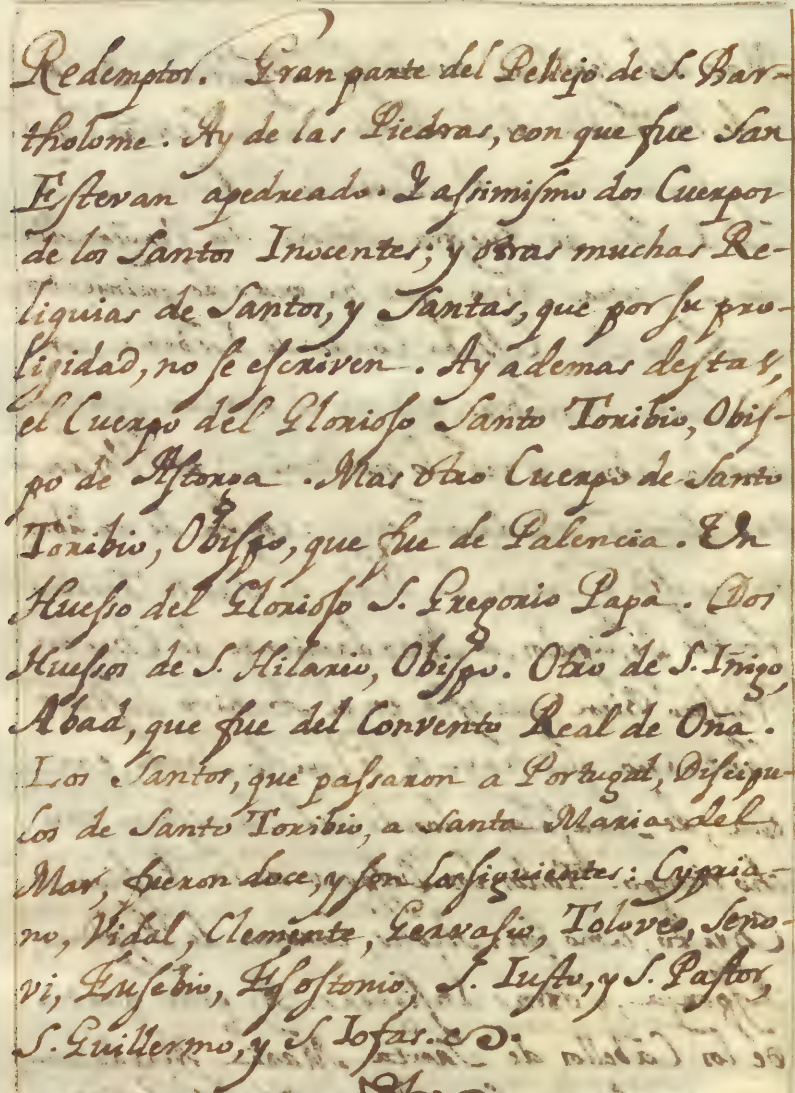 Redemptor. Gran parte del Pellejo de S. Bar-
tholome. Ay de las Piedras, con que fue San
Estevan apedreado. Y assimismo dos Cuerpos
de los Santos Inocentes; y otras muchas Re-
liquias de Santos, y Santas, que por su pro-
ligidad, no se escriven. Ay ademas destas,
el Cuerpo del Glorioso Santo Toribio, Obis-
po de Astorga. Mas otro Cuerpo de Santo
Toribio, Obispo, que fue de Palencia. Un
Huesso del Glorioso S. Gregorio Papa. Dos
Huessos de S. Hilario, Obispo. Otro de S. Iñigo,
Abad, que fue del Convento Real de Oña.
Los Santos, que passaron a Portugal, Discipu-
los de Santo Toribio, a Santa Maria del
Mar, fueron doce, y son los siguientes: Cypria-
no, Vidal, Clemente, Gervasio, Toloveo, Seno-
vi, Eusebio, Esostonio, S. Iusto, y S. Pastor,
S. Guillermo, y S. Iofas.